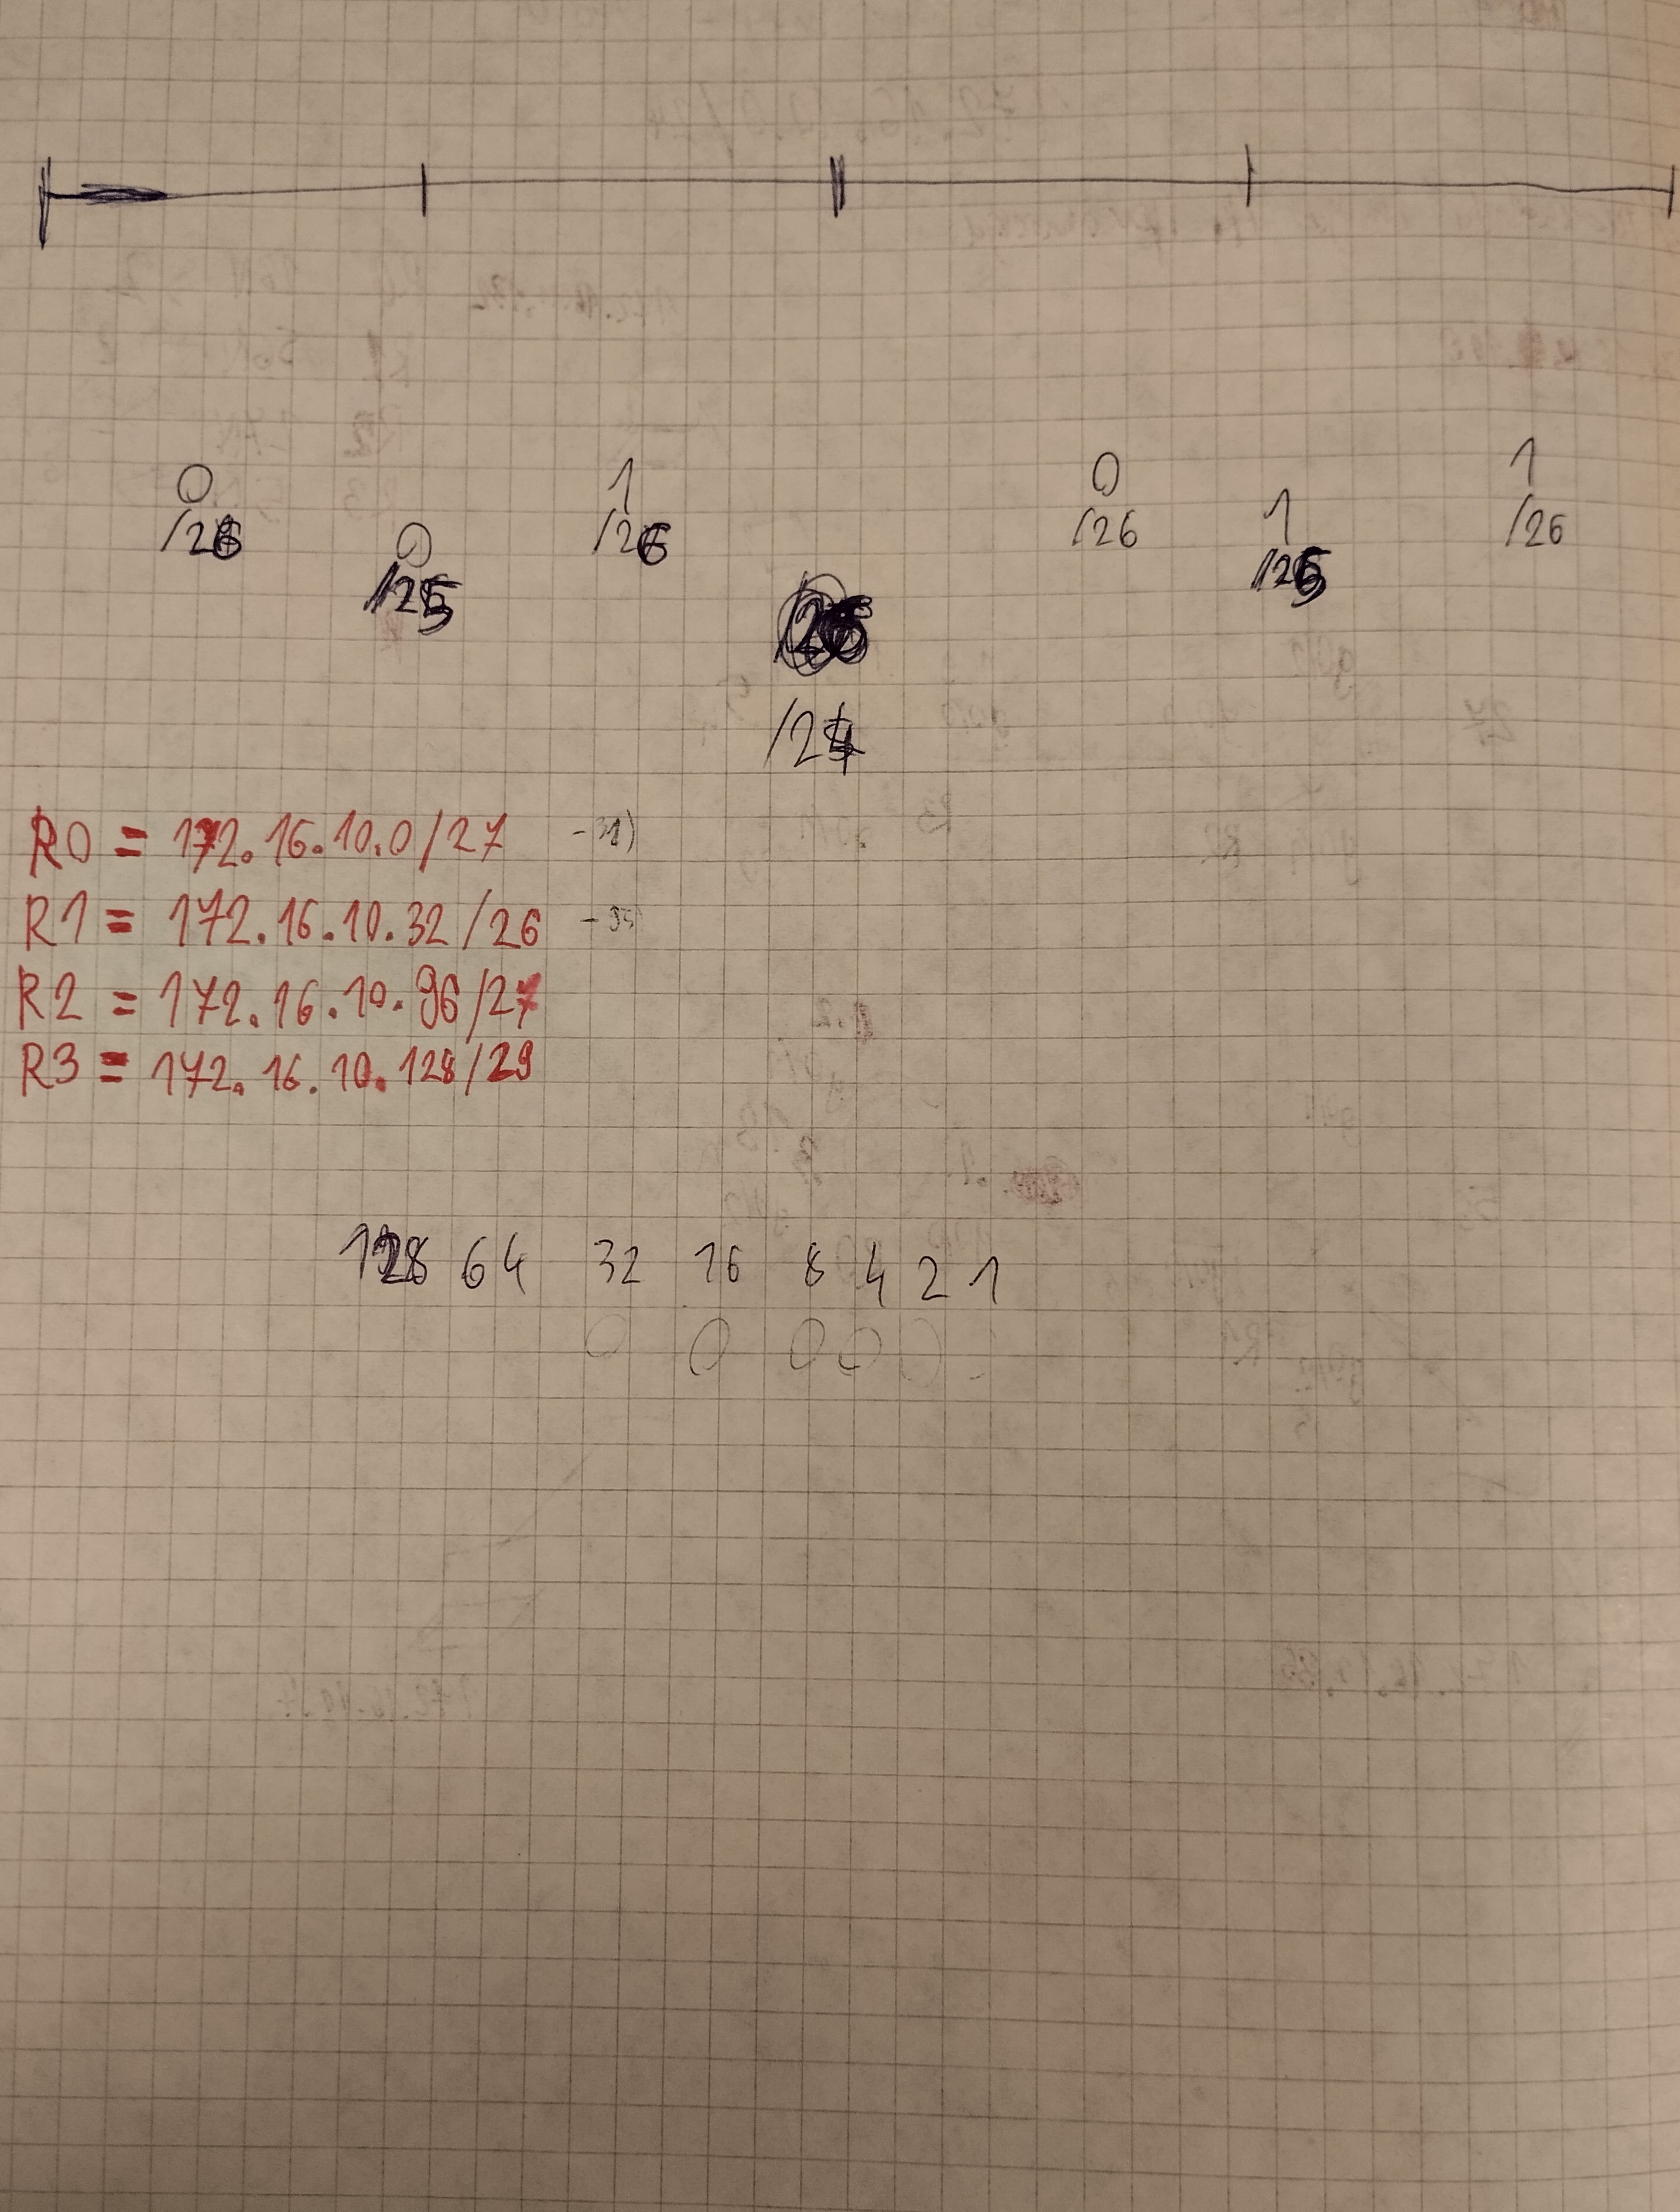 0 1 0 1
/26 /26 /26 /26
0 1
/25 /25
/24
R0 = 172.16.10.0/27 -31)
R1 = 172.16.10.32/26 -95)
R2 = 172.16.10.96/27
R3 = 172.16.10.128/29
128 64 32 16 8 4 2 1
0 0 0 0 0